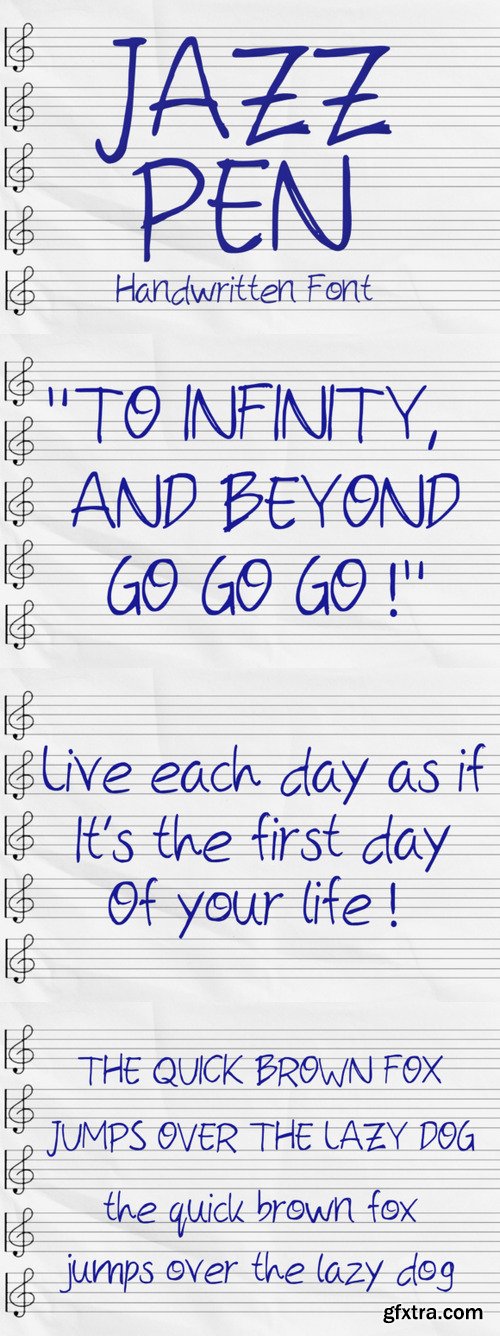 JAZZ
PEN
Handwritten Font
"TO INFINITY,
AND BEYOND
GO GO GO !"
Live each day as if
It's the first day
Of your life !
THE QUICK BROWN FOX
JUMPS OVER THE LAZY DOG
the quick brown fox
jumps over the lazy dog
gfxtra.com